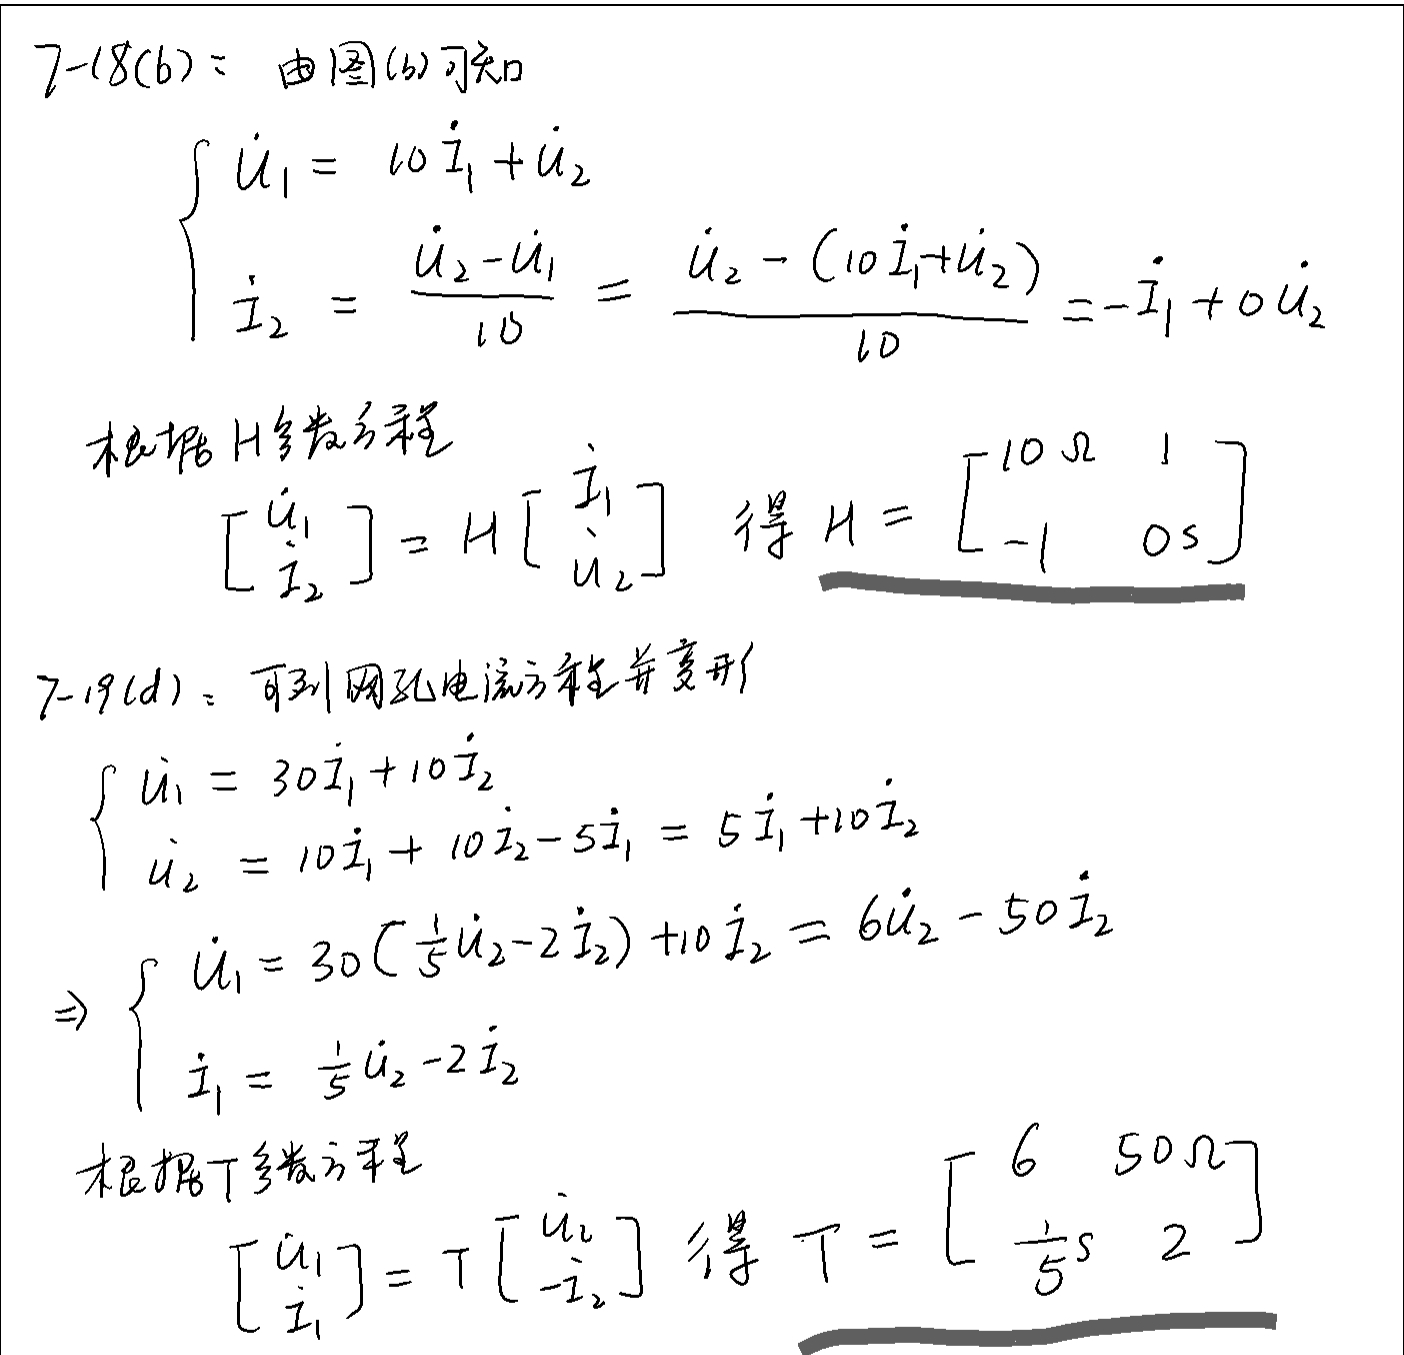 7-18(b): 由图(b)可知
U̇₁ = 10İ₁ + U̇₂
İ₂ = (U̇₂ - U̇₁)/10 = (U̇₂ - (10İ₁ + U̇₂))/10 = -İ₁ + 0U̇₂
根据H参数方程
[U̇₁ İ₂] = H [İ₁ U̇₂] 得 H = [10Ω 1 -1 0S]
7-19(d): 可列网孔电流方程并变形
U̇₁ = 30İ₁ + 10İ₂
U̇₂ = 10İ₁ + 10İ₂ - 5İ₁ = 5İ₁ + 10İ₂
U̇₁ = 30(1/5 U̇₂ - 2İ₂) + 10İ₂ = 6U̇₂ - 50İ₂
⇒ İ₁ = 1/5 U̇₂ - 2İ₂
根据T参数方程
[U̇₁ İ₁] = T [U̇₂ -İ₂] 得 T = [6 50Ω 1/5 S 2]